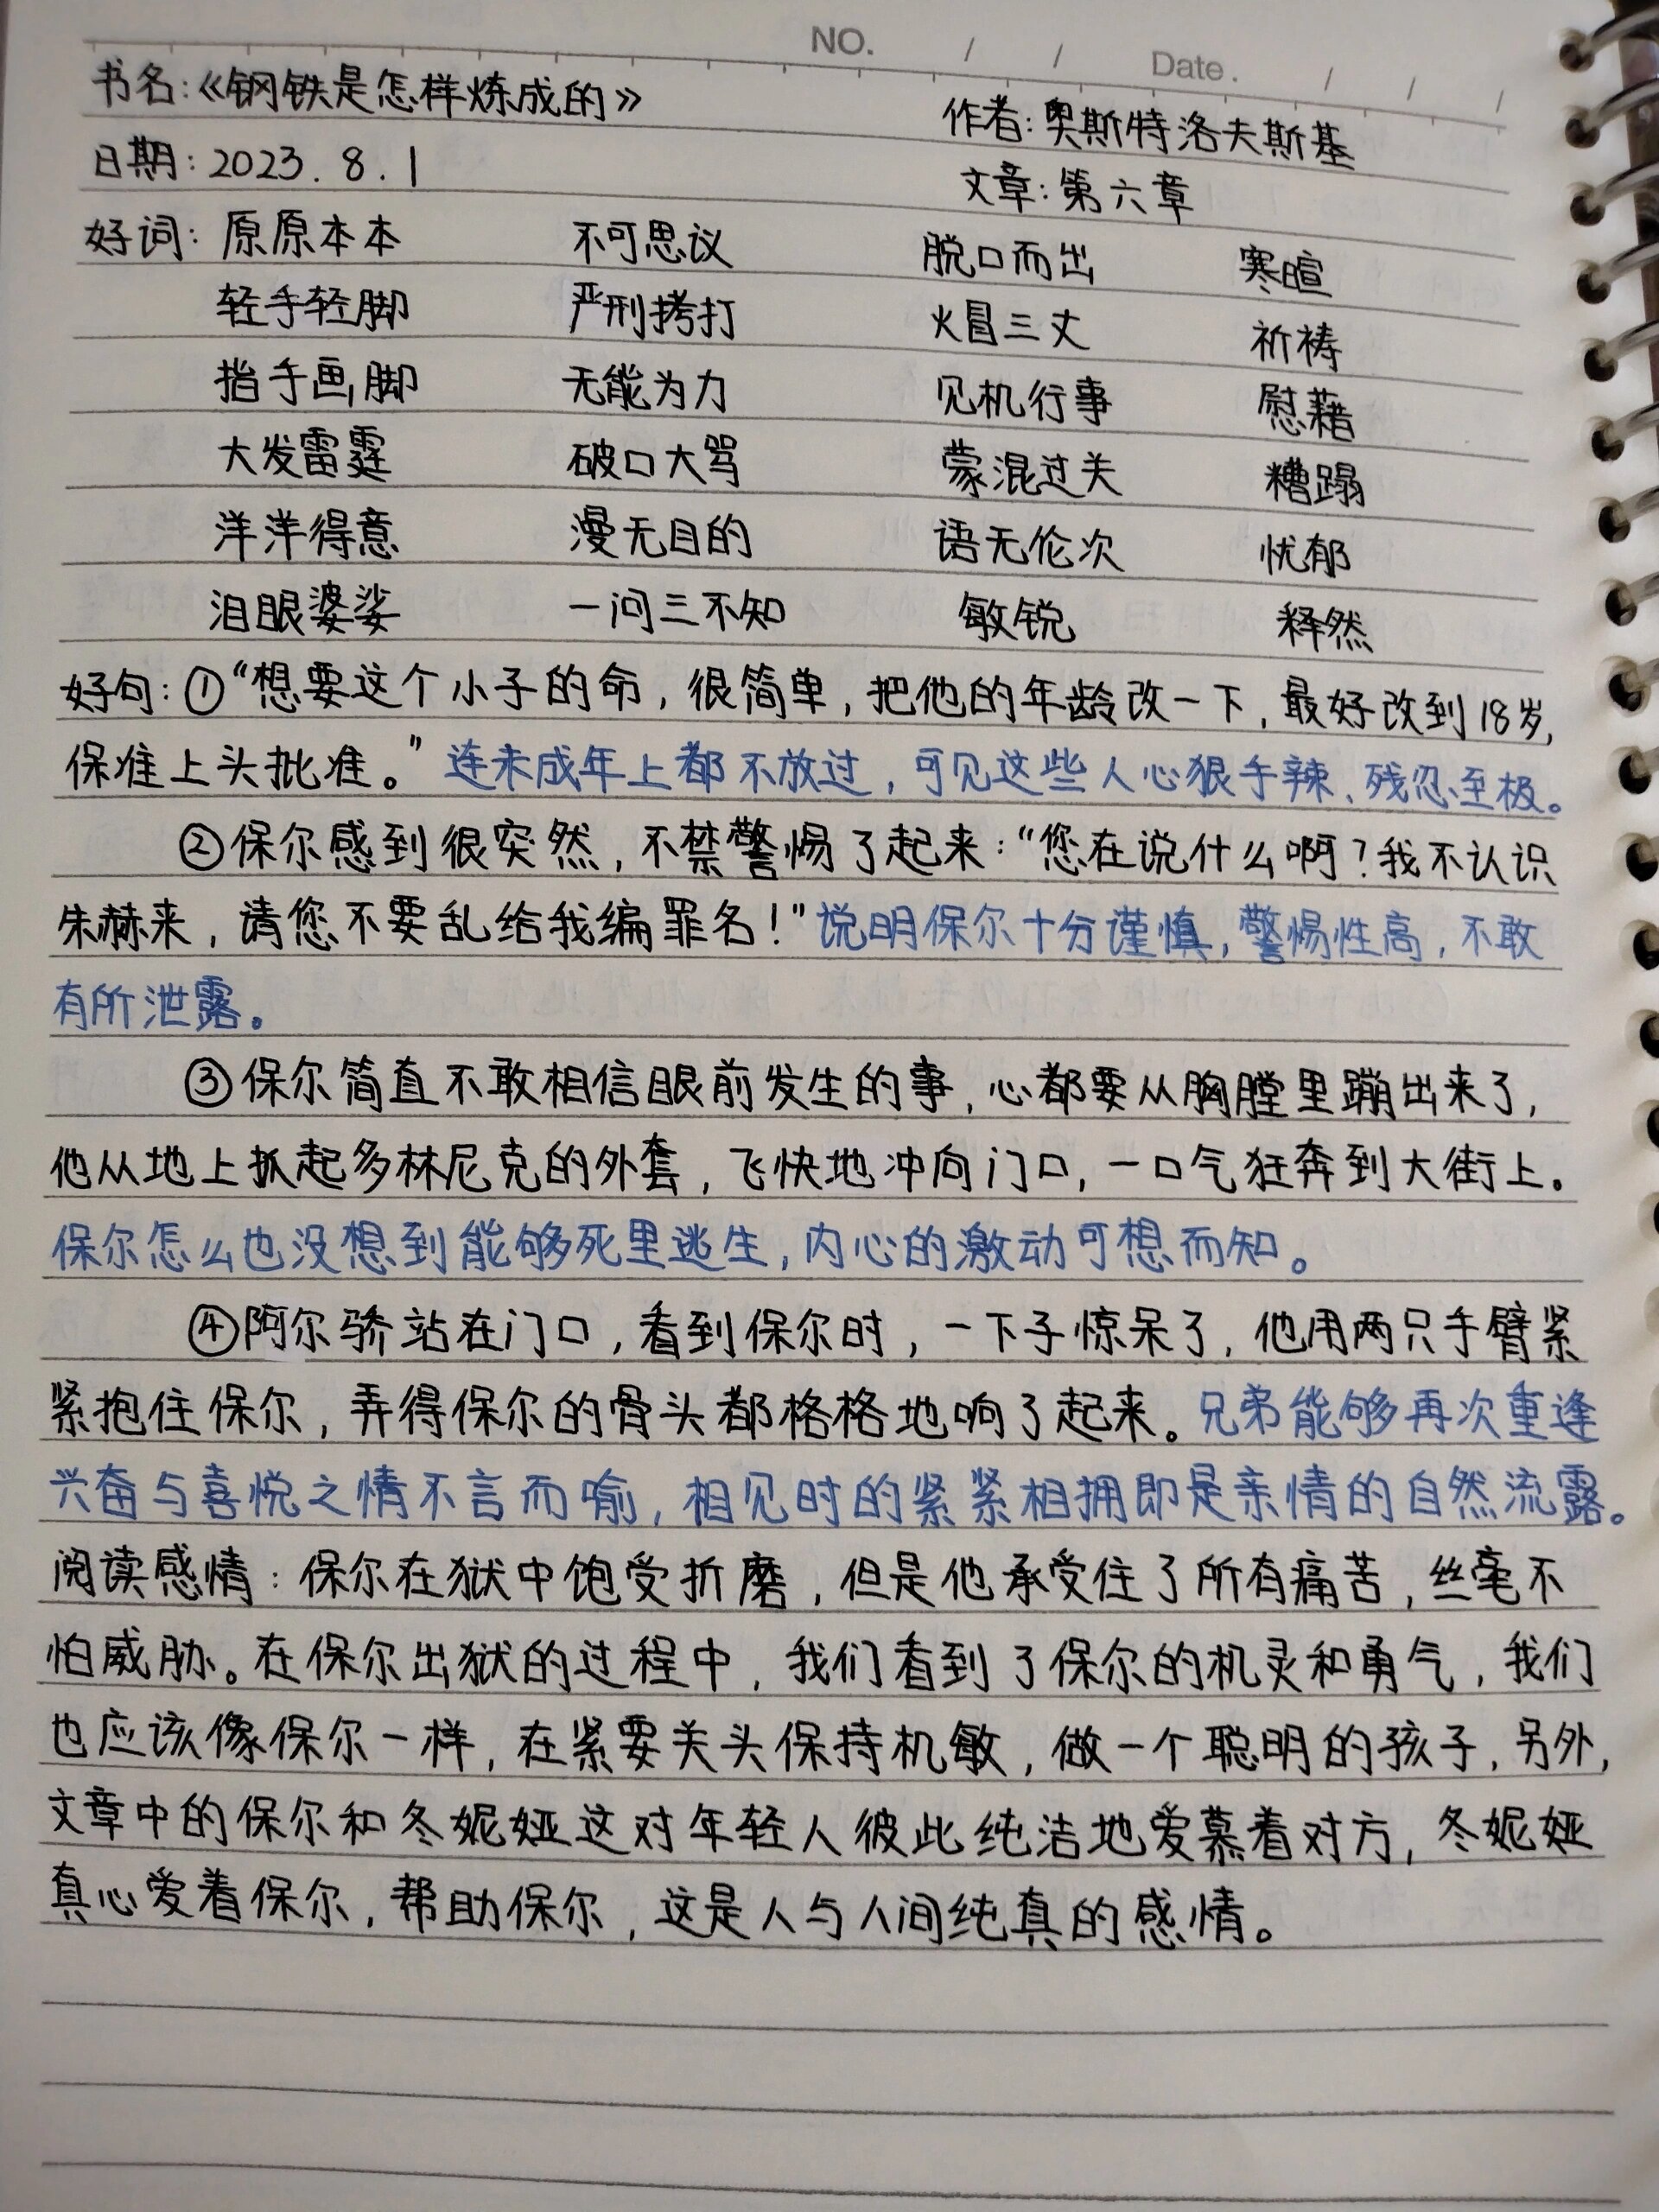 NO. / / Date. / / /
书名:《钢铁是怎样炼成的》 作者:奥斯特洛夫斯基
日期: 2023.8.1 文章:第六章
好词: 原原本本 不可思议 脱口而出 寒暄
轻手轻脚 严刑拷打 火冒三丈 祈祷
指手画脚 无能为力 见机行事 慰藉
大发雷霆 破口大骂 蒙混过关 糟蹋
洋洋得意 漫无目的 语无伦次 忧郁
泪眼婆娑 一问三不知 敏锐 释然
好句:①“想要这个小子的命,很简单,把他的年龄改一下,最好改到18岁,
保准上头批准。”连未成年上都不放过,可见这些人心狠手辣、残忍至极。
②保尔感到很突然,不禁警惕了起来:“您在说什么啊?我不认识
朱赫来,请您不要乱给我编罪名!”说明保尔十分谨慎,警惕性高,不敢
有所泄露。
③保尔简直不敢相信眼前发生的事,心都要从胸膛里蹦出来了,
他从地上抓起多林尼克的外套,飞快地冲向门口,一口气狂奔到大街上。
保尔怎么也没想到能够死里逃生,内心的激动可想而知。
④阿尔骄站在门口,看到保尔时,一下子惊呆了,他用两只手臂紧
紧抱住保尔,弄得保尔的骨头都格格地响了起来。兄弟能够再次重逢
兴奋与喜悦之情不言而喻,相见时的紧紧相拥即是亲情的自然流露。
阅读感情:保尔在狱中饱受折磨,但是他承受住了所有痛苦,丝毫不
怕威胁。在保尔出狱的过程中,我们看到了保尔的机灵和勇气,我们
也应该像保尔一样,在紧要关头保持机敏,做一个聪明的孩子,另外,
文章中的保尔和冬妮娅这对年轻人彼此纯洁地爱慕着对方,冬妮娅
真心爱着保尔,帮助保尔,这是人与人间纯真的感情。